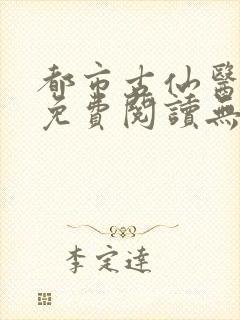 都市古仙醫
免費閱讀無
李定達